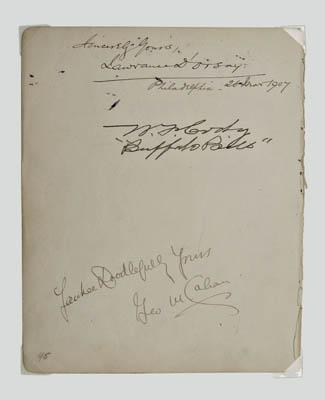 Sincerely Yours,
Lawrance D'Orsay.
Philadelphia. 26 Mar 1907
W. F. Cody
"Buffalo Bill"
Yankee Doodlefully Yours
Geo M Cohan